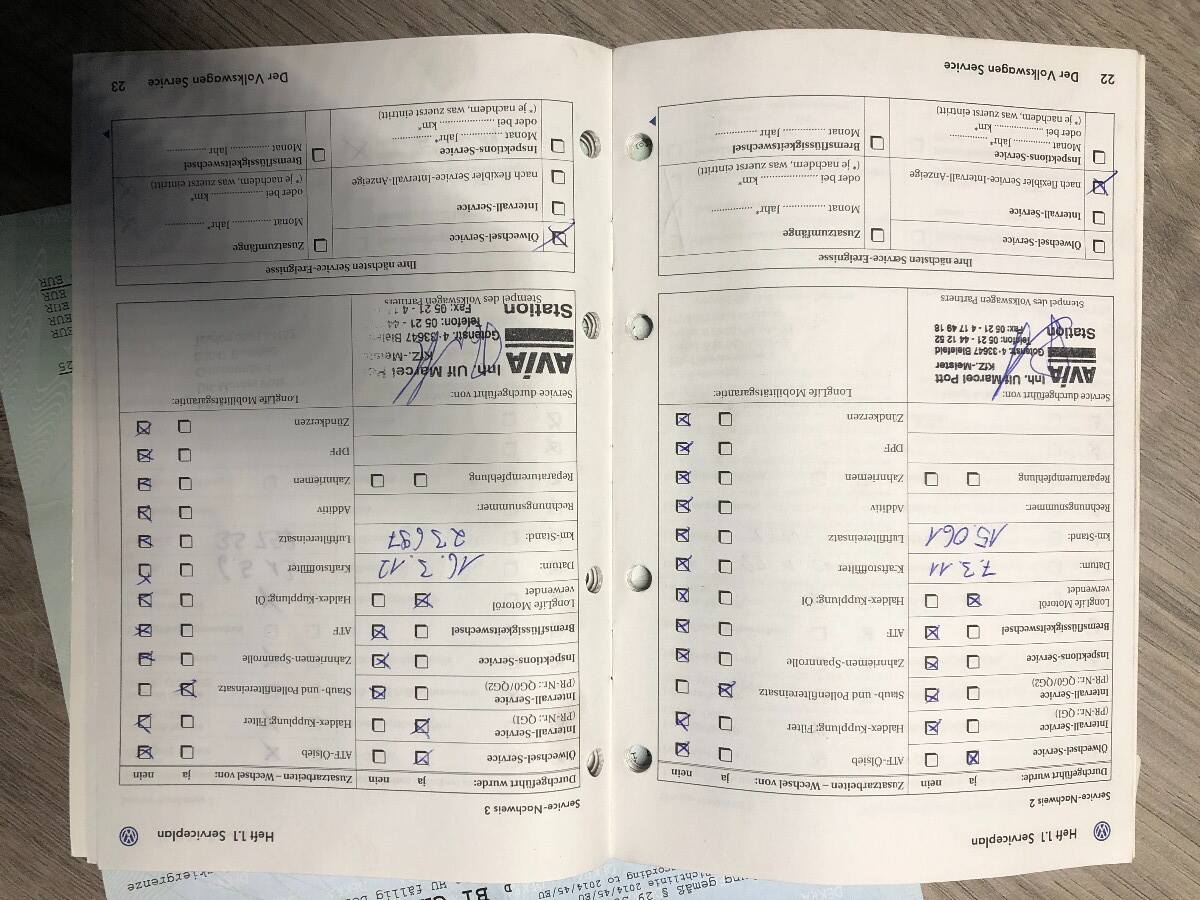 Heft 1.1 Serviceplan
Service-Nachweis 2
Durchgeführt wurde: ja nein
Ölwechsel-Service
Intervall-Service
(PR-Nr.: QG1)
Intervall-Service
(PR-Nr.: QG0/QG2)
Inspektions-Service
Bremsflüssigkeitswechsel
LongLife Motoröl
verwendet
Datum: 7.3.11
km-Stand: 15.061
Rechnungsnummer:
Reparaturempfehlung
Zusatzarbeiten – Wechsel von: ja nein
ATF-Ölsieb
Haldex-Kupplung: Filter
Staub- und Pollenfiltereinsatz
Zahnriemen-Spannrolle
ATF
Haldex-Kupplung: Öl
Kraftstofffilter
Luftfiltereinsatz
Additiv
Zahnriemen
DPF
Zündkerzen
Service durchgeführt von:
LongLife Mobilitätsgarantie:
AVIA
Station
Inh. Ulf Marcel Pott
KfZ.-Meister
Gotenstr. 4·33647 Bielefeld
Telefon: 05 21 - 44 12 52
Fax: 05 21 - 4 17 49 18
Stempel des Volkswagen Partners
Ihre nächsten Service-Ereignisse
Ölwechsel-Service
Intervall-Service
nach flexibler Service-Intervall-Anzeige
Inspektions-Service
Monat .............. Jahr*
oder bei .............. km*
(* je nachdem, was zuerst eintritt)
Zusatzumfänge
Monat .............. Jahr* ..............
oder bei .............. km*
(* je nachdem, was zuerst eintritt)
Bremsflüssigkeitswechsel
Monat .............. Jahr ..............
22 Der Volkswagen Service
Heft 1.1 Serviceplan
Service-Nachweis 3
Durchgeführt wurde: ja nein
Ölwechsel-Service
Intervall-Service
(PR-Nr.: QG1)
Intervall-Service
(PR-Nr.: QG0/QG2)
Inspektions-Service
Bremsflüssigkeitswechsel
LongLife Motoröl
verwendet
Datum: 16.3.12
km-Stand: 23697
Rechnungsnummer:
Reparaturempfehlung
Zusatzarbeiten – Wechsel von: ja nein
ATF-Ölsieb
Haldex-Kupplung: Filter
Staub- und Pollenfiltereinsatz
Zahnriemen-Spannrolle
ATF
Haldex-Kupplung: Öl
Kraftstofffilter
Luftfiltereinsatz
Additiv
Zahnriemen
DPF
Zündkerzen
Service durchgeführt von:
LongLife Mobilitätsgarantie:
AVIA
Station
Inh. Ulf Marcel
Gotenstr. 4·33647
Telefon: 05 21 - 44
Fax: 05 21 - 4
Stempel des Volkswagen Partners
Ihre nächsten Service-Ereignisse
Ölwechsel-Service
Intervall-Service
nach flexibler Service-Intervall-Anzeige
Inspektions-Service
Monat .............. Jahr* ..............
oder bei .............. km*
(* je nachdem, was zuerst eintritt)
Zusatzumfänge
Monat .............. Jahr* ..............
oder bei .............. km*
(* je nachdem, was zuerst eintritt)
Bremsflüssigkeitswechsel
Monat .............. Jahr ..............
Der Volkswagen Service 23
EUR
EUR
EUR
EUR
EUR
gemäß § 29
2014/45/EU
2014/45/EU
HU fällig